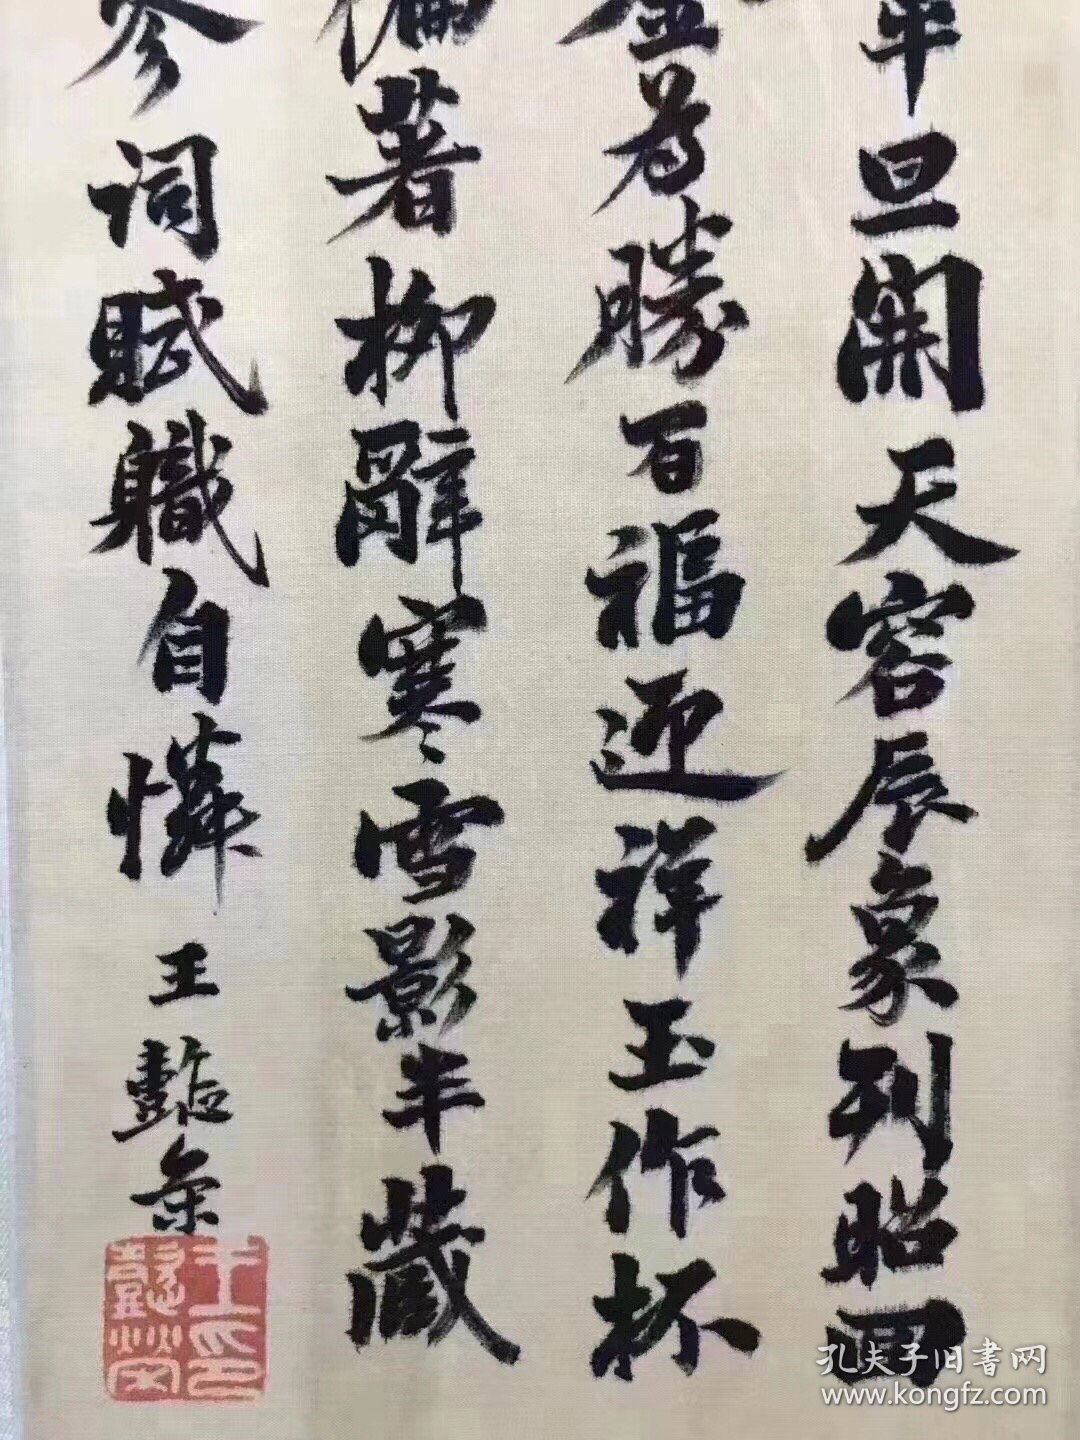 旦開天容辰象列昭回
金為勝百福迎祥玉作杯
偏著柳辭寒雪影半藏
參詞賦職自憐
王懿榮
王印懿榮
孔夫子旧書网
www.kongfz.com